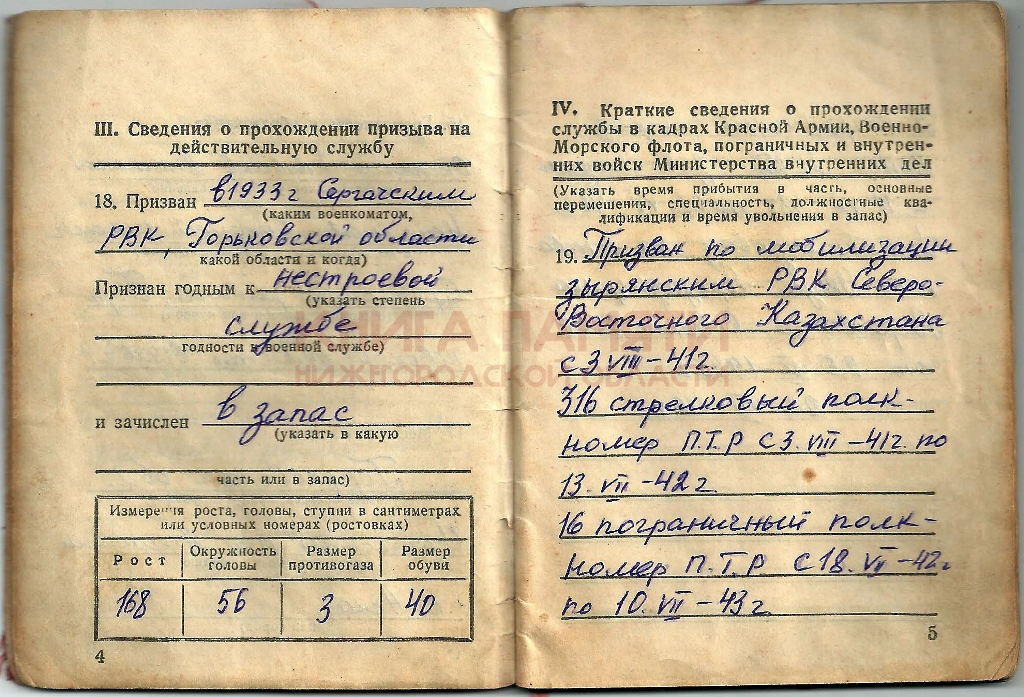 III. Сведения о прохождении призыва на
действительную службу
18. Призван в 1933 г Сергачским
(каким военкоматом,
РВК, Горьковской области
какой области и когда)
Признан годным к нестроевой
(указать степень
службе
годности к военной службе)
и зачислен в запас
(указать в какую
часть или в запас)
Измерения роста, головы, ступни в сантиметрах
или условных номерах (ростовках)
Рост Окружность головы Размер противогаза Размер обуви
168 56 3 40
4
IV. Краткие сведения о прохождении
службы в кадрах Красной Армии, Военно-
Морского флота, пограничных и внутрен-
них войск Министерства внутренних дел
(Указать время прибытия в часть, основные
перемещения, специальность, должностные ква-
лификации и время увольнения в запас)
19. Призван по мобилизации
зырянским РВК Северо-
Восточного Казахстана
с 3 VIII – 41 г
316 стрелковый полк-
номер П.Т.Р с 3. VIII – 41 г. по
13. VII – 42 г
16 пограничный полк-
номер П.Т.Р с 18. VII – 42 г
по 10. VII – 43 г
5
КНИГА ПАМЯТИ
НИЖЕГОРОДСКОЙ ОБЛАСТИ